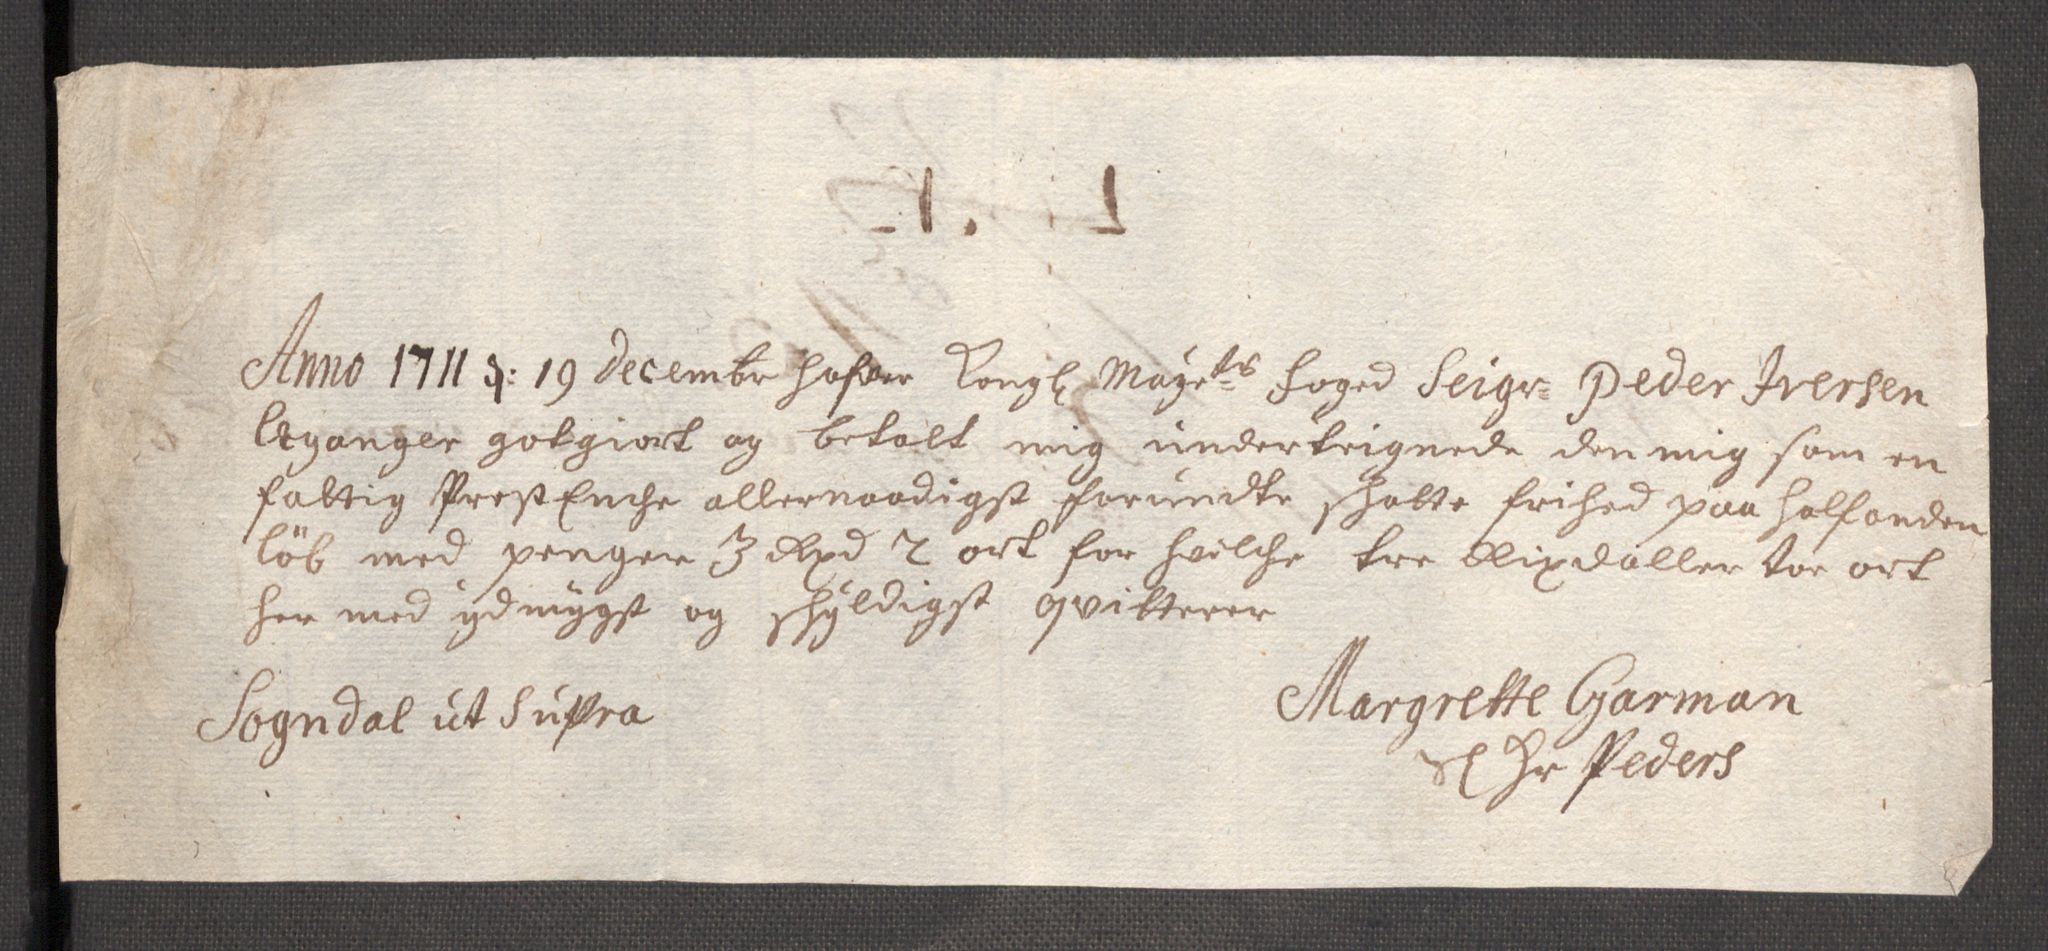 Anno 1711 d: 19 decembr hafver Kongl Mayets foged Seigr= Peder Iversen
leganger gotgiort og betalt mig underteignede den mig som en
fattig Prest Enche allernaadigst forundte schatte frihed paa halfanden
löb med penger 3 Rxd 2 ort for hvilche tre Rixdaller toe ort
her med ydmygst og schyldigst qvitterer
Sogndal ut Supra
Margrette Garman
Sl Hr Peders